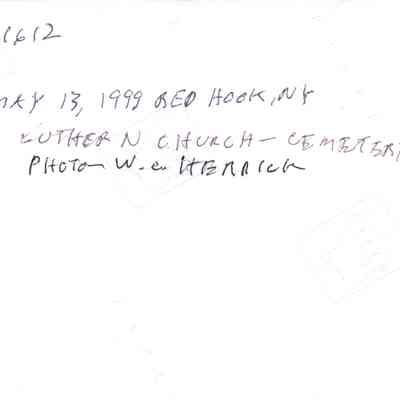 1612
MAY 13, 1999 RED HOOK, NY
LUTHERN CHURCH - CEMETERY
PHOTO W. C. HERRICK